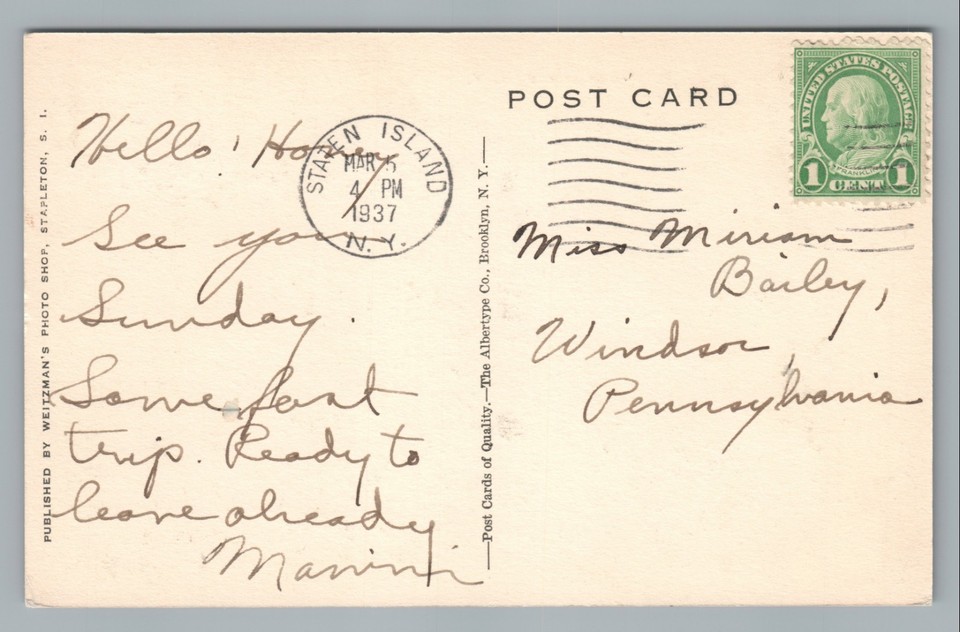 Hello! Honey
See you
Sunday.
Some fast
trip. Ready to
leave already
PUBLISHED BY WEITZMAN'S PHOTO SHOP, STAPLETON, S. I.
STATEN ISLAND
MAR 5
4 PM
1937
N.Y.
—Post Cards of Quality.—The Albertype Co., Brooklyn, N. Y.—
POST CARD
UNITED STATES POSTAGE
FRANKLIN
1 CENT 1
Miss Miriam
Bailey,
Windsor,
Pennsylvania